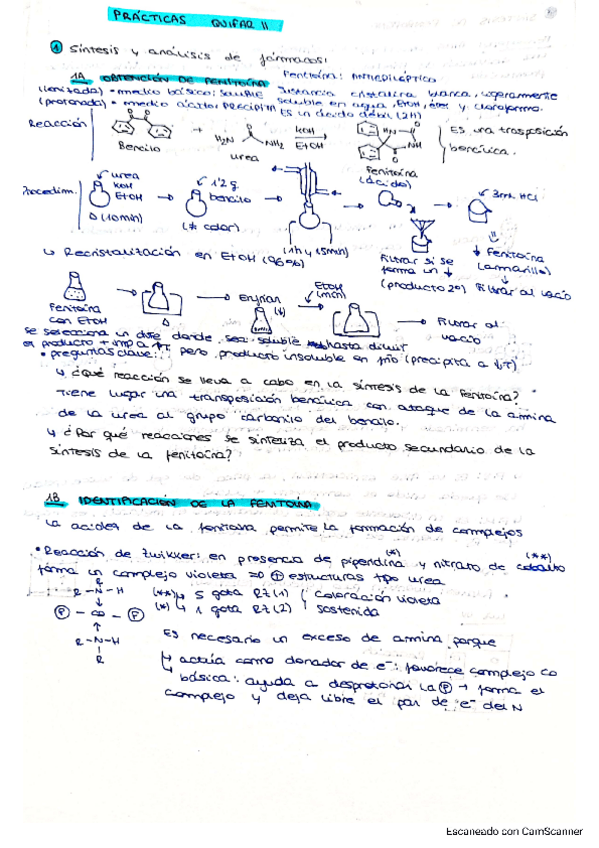 PRÁCTICAS QUIFAR II
① Síntesis y análisis de fármacos:
1A OBTENCIÓN DE FENITOÍNA
Fenitoína: Antiepiléptico
(Ionizada) • medio básico: soluble
Sustancia cristalina blanca, ligeramente
(protonada) • medio ácido: precipita
soluble en agua, EtOH, éter y cloroformo.
Es un ácido débil (2H)
Reacción
Bencilo
+
H₂N
O
NH₂
urea
KOH
EtOH
HN
NH
O
Fenitoína
(ácida)
Es una trasposición
bencílica.
Procedim.
urea
KOH
EtOH
Δ (10min)
1'2 g
bencilo
(* color)
(1h y 15min)
Filtrar si se
forma un ↓
(producto 2º)
3mL HCl
↓ Fenitoína
(amarillo)
Filtrar al vacío
↳ Recristalización en EtOH (96%)
Fenitoína
con EtOH
Δ
Enfrían
(*)
EtOH
(mín)
Filtrar al
vacío
se selecciona un dve donde sea: soluble hasta diluir
el producto + imp a ↑T pero producto insoluble en frío (precipita a ↓T)
• preguntas clave:
↳ ¿Qué reacción se lleva a cabo en la síntesis de la fenitoína?
Tiene lugar una transposición bencílica con ataque de la amina
de la urea al grupo carbonilo del bencilo.
↳ ¿Por qué reacciones se sintetiza el producto secundario de la
síntesis de la fenitoína?
1B IDENTIFICACIÓN DE LA FENITOÍNA
La acidez de la fenitoína permite la formación de complejos
• Reacción de Zwikker: en presencia de piperidina (*) y nitrato de cobalto (**)
forma un complejo violeta ⇒ ⊕ estructuras tipo urea
R
R-N-H
↓
Ⓟ - Co - Ⓟ
↑
R-N-H
R
(**) ↳ 5 gota RZ (1)
(*) ↳ 1 gota RZ (2)
coloración violeta
sostenida
Es necesario un exceso de amina porque
↳ actúa como donador de e⁻: favorece complejo Co
↳ básica: ayuda a desprotonar la Ⓟ → forma el
complejo y deja libre el par de e⁻ del N
Escaneado con CamScanner